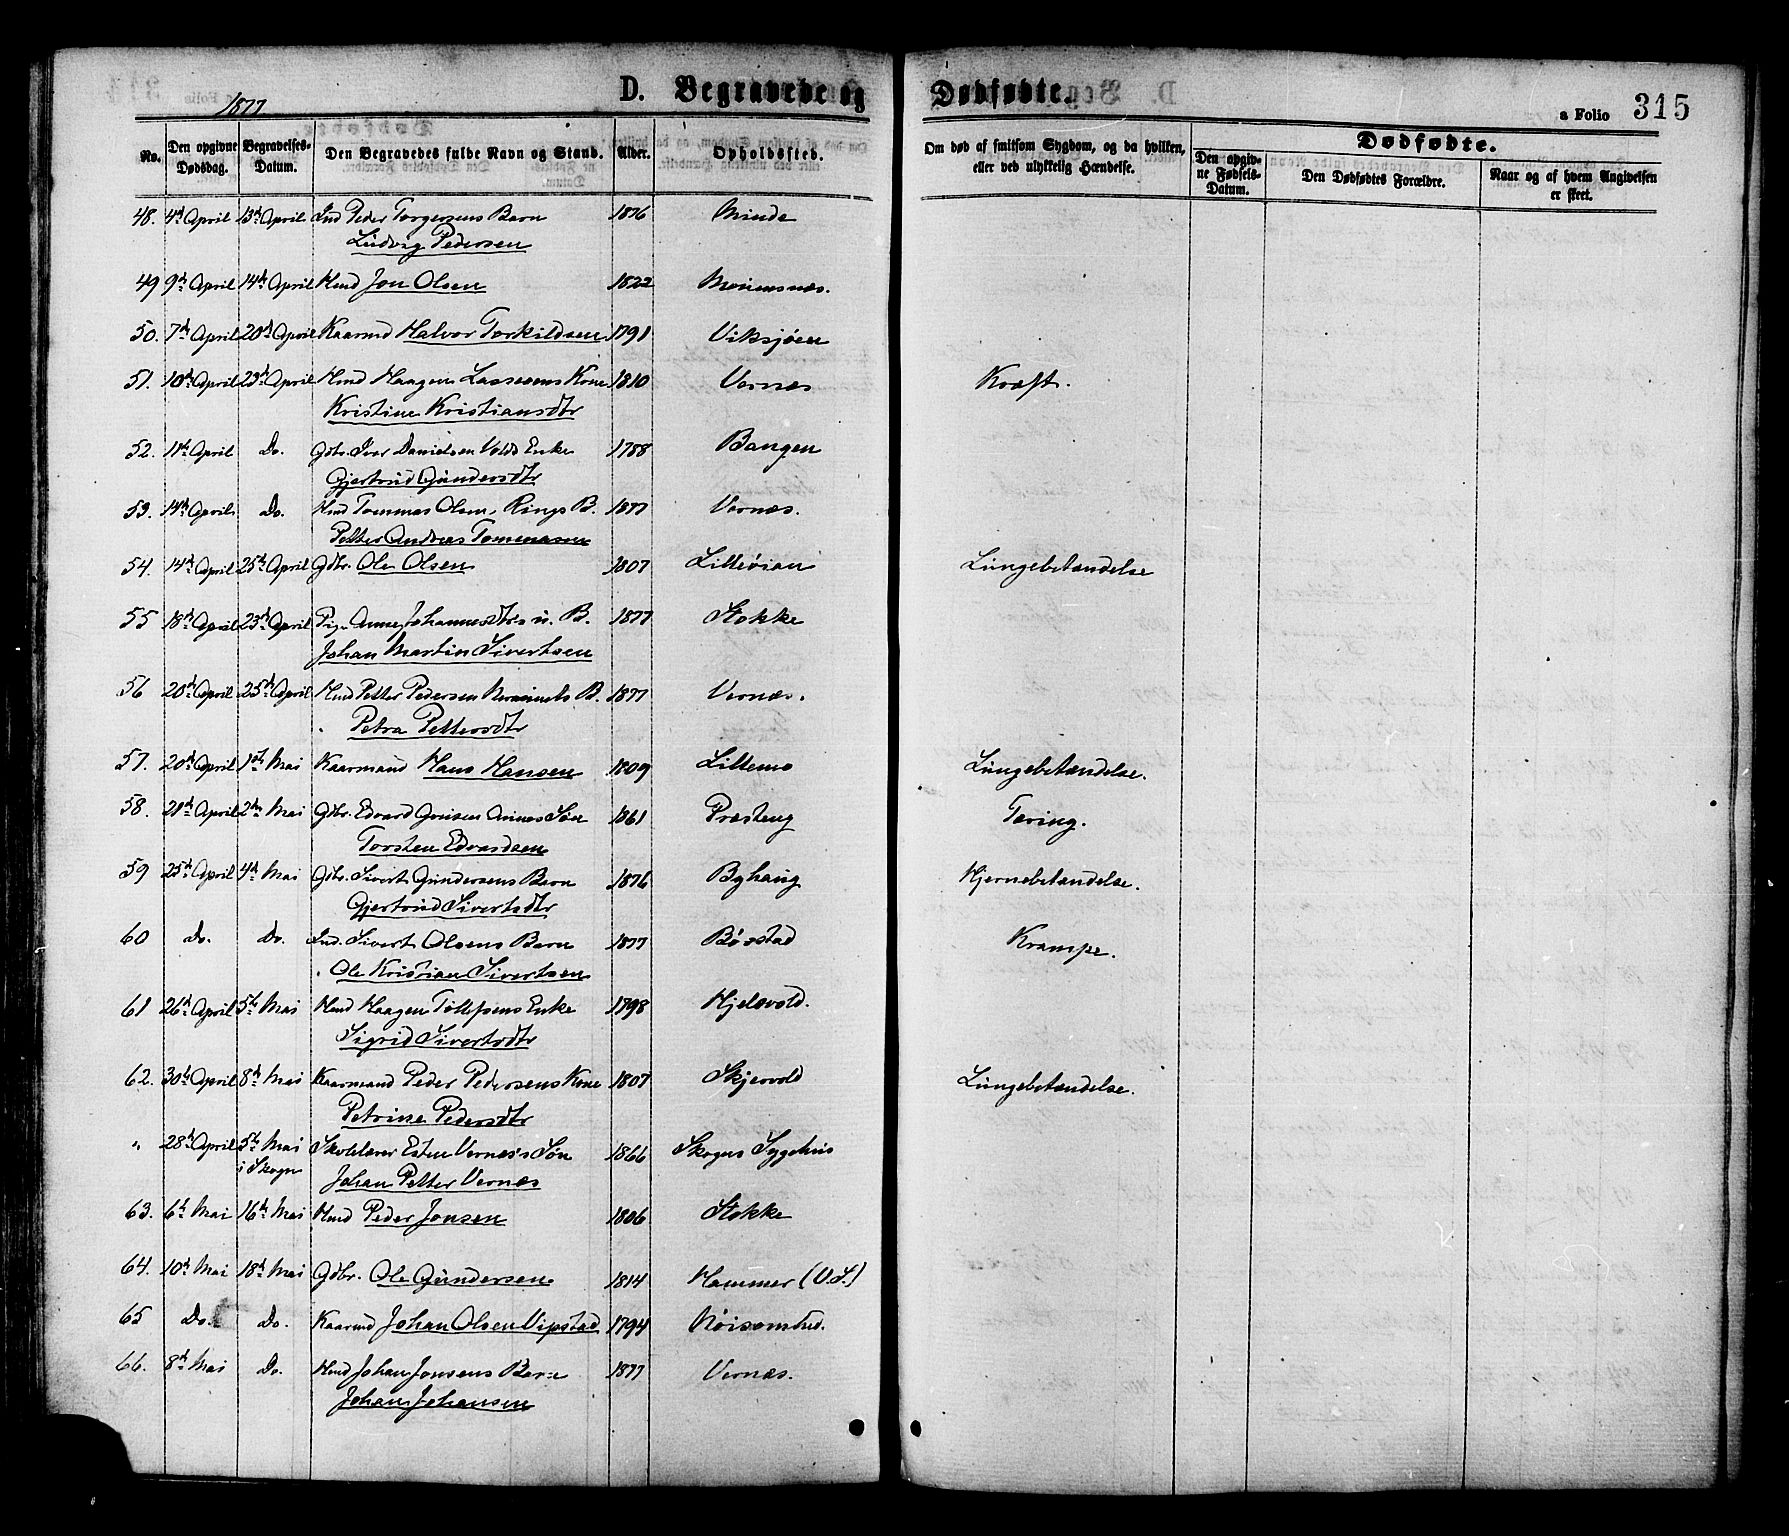 1877
D. Begravede og Dødfødte.
a Folio 315
No. Den opgivne Dødsdag. Begravelses-Datum. Den Begravedes fulde Navn og Stand. Alder. Opholdssted. Om død af smitsom Sygdom, og da hvilken, eller ved ulykkelig Hændelse. Dødfødte.
Den opgivne Fødsels-Datum. Den Dødfødtes Forældre. Naar og af hvem Angivelsen er skeet.
48. 4de April 13de April Ind Peder Torgersens Barn 1876 Minde
Ludvig Pedersen
49 9de April 14de April Hmd Jon Olsen 1822
50. 7de April 20de April Kaarmd Halvor Torkildsen 1791 Viksjøen
51. 10de April 23de April Hmd Haagen Lassesens Kone 1810 Vernæs Kræft.
Kristine Kristiansdtr
52. 11te April Do. Gdbr. Iver Danielsen Volds Enke 1788 Bangen
Gjertrud Gundersdtr
53. 14de April Do. Hmd Tommas Olsen Rings B. 1877 Vernæs.
Petter Andreas Tommasen
54. 14de April 25de April Gdbr. Ole Olsen 1807 Lungebetændelse
55 18de April 23de April Pige Anne Johannesdtrs u. B. 1877 Stokke
Johan Martin Sivertsen
56 20de April 25de April Hmd Petter Pedersen B. 1877 Vernæs.
Petra Pettersdtr
57. 20de April 1ste Mai Kaarmand Hans Hansen 1809 Lillemo Lungebetændelse.
58. 21de April 2den Mai Gdbr. Edvard Søn 1861 Præsteng Tæring.
Torsten Edvardsen
59 25de April 4de Mai Gdbr. Sivert Gundersens Barn 1876 Byhaug Hjernebetændelse.
Gjertrud Sivertsdtr
60 Do. Do. Ind. Sivert Olsens Barn 1877 Bøstad Krampe.
Ole Kristian Sivertsen
61 26de April 5te Mai Hmd Haagen Tollefsens Enke 1798 Hjelsvold.
Sigrid Sivertsdtr
62. 30te April 8de Mai Kaarmand Peder Pedersens Kone 1807 Skjervold Lungebetændelse.
Petrine Pedersdtr
" 28de April 5te Mai Skolelærer Esten Vernæs's Søn 1866 Skogns Sygehus
i Skogn Johan Petter Vernæs
63. 6te Mai 16de Mai Hmd Peder Jonsen 1806 Stokke
64. 10de Mai 18de Mai Gdbr. Ole Gundersen 1814 Hammer (V.S.)
65 Do. Do. Kaarmd Johan Olsen Vipstad 1794
66. 8de Mai Do. Hmd Johan Jonsens Barn 1877 Vernæs.
Johan Johansen